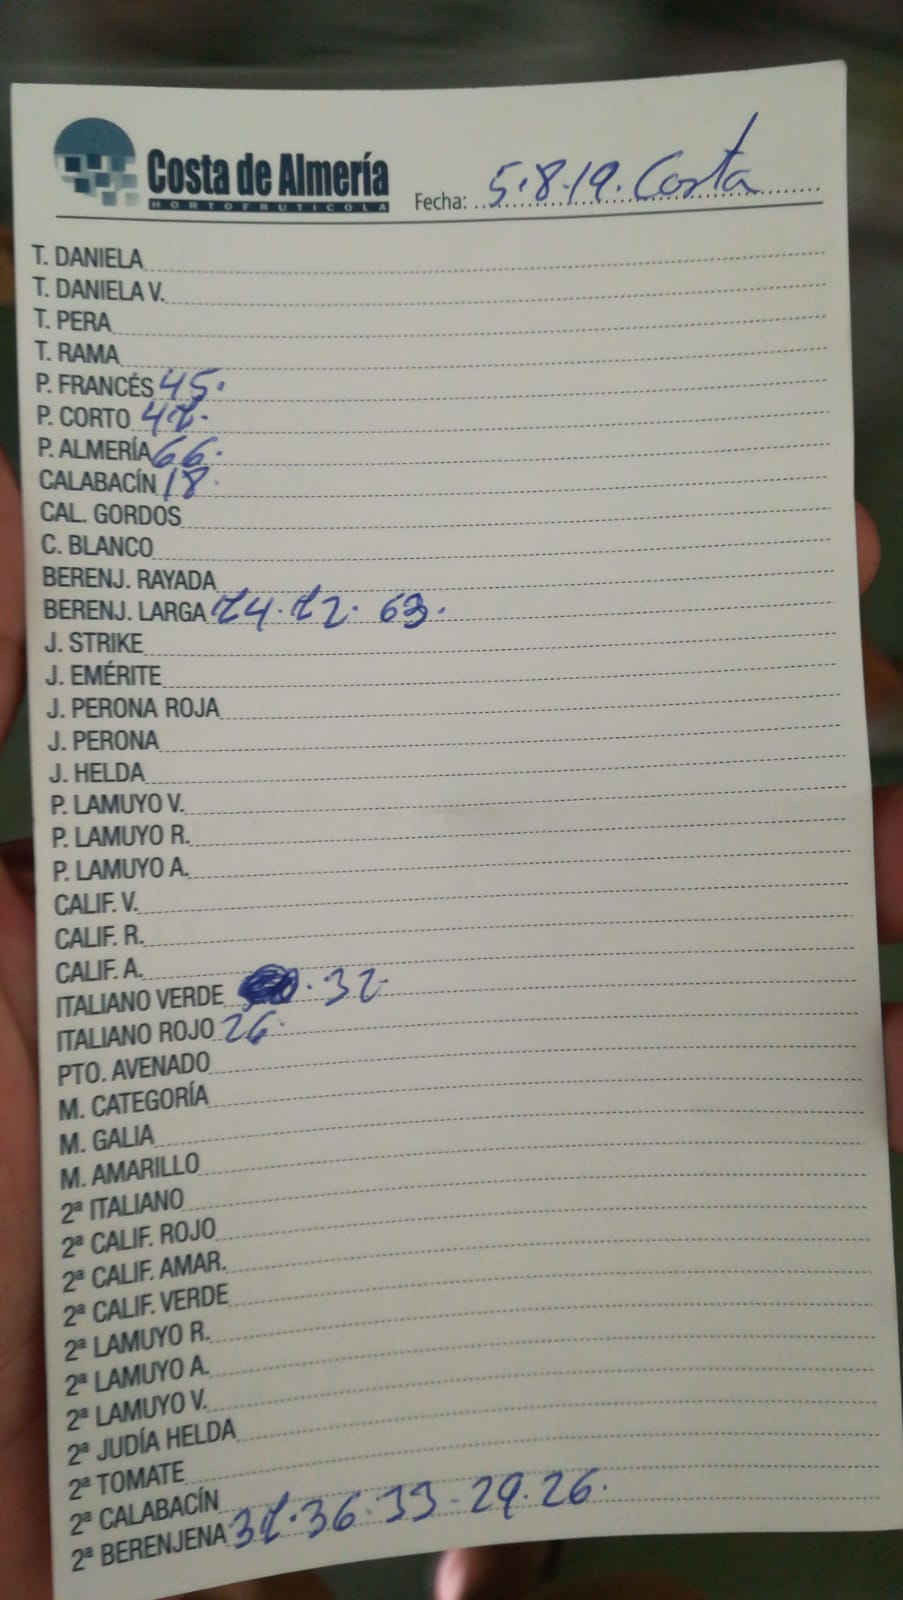 Costa de Almería
HORTOFRUTICOLA
Fecha: 5.8.19. Costa
T. DANIELA
T. DANIELA V.
T. PERA
T. RAMA
P. FRANCÉS 45.
P. CORTO
P. ALMERÍA 66.
CALABACÍN 18.
CAL. GORDOS
C. BLANCO
BERENJ. RAYADA
BERENJ. LARGA 63.
J. STRIKE
J. EMÉRITE
J. PERONA ROJA
J. PERONA
J. HELDA
P. LAMUYO V.
P. LAMUYO R.
P. LAMUYO A.
CALIF. V.
CALIF. R.
CALIF. A.
ITALIANO VERDE
ITALIANO ROJO 26.
PTO. AVENADO
M. CATEGORÍA
M. GALIA
M. AMARILLO
2ª ITALIANO
2ª CALIF. ROJO
2ª CALIF. AMAR.
2ª CALIF. VERDE
2ª LAMUYO R.
2ª LAMUYO A.
2ª LAMUYO V.
2ª JUDÍA HELDA
2ª TOMATE
2ª CALABACÍN
2ª BERENJENA 36. 33 - 29. 26.